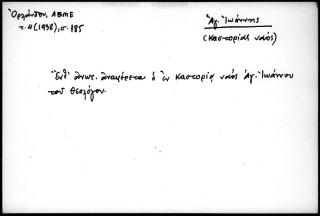 Ὀρλάνδον, ΑΒΜΕ
τ. 4 (1938), σ. 185
Ἁγ. Ἰωάννης
(Καστοριᾶς ναός)
ἀναφέρεται ὁ ἐν Καστοριᾷ ναός Ἁγ. Ἰωάννου
τοῦ Θεολόγου.